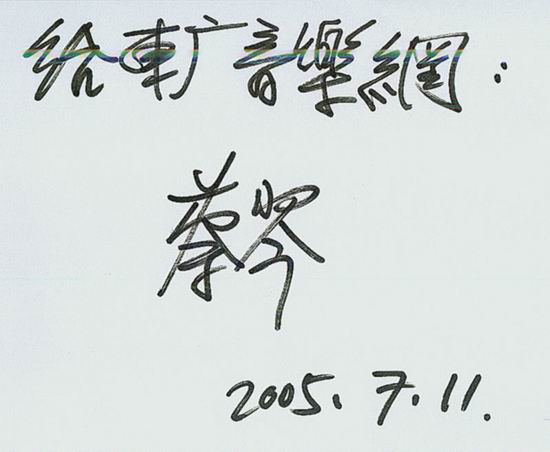 给東广音樂網：
蔡琴
2005.7.11.